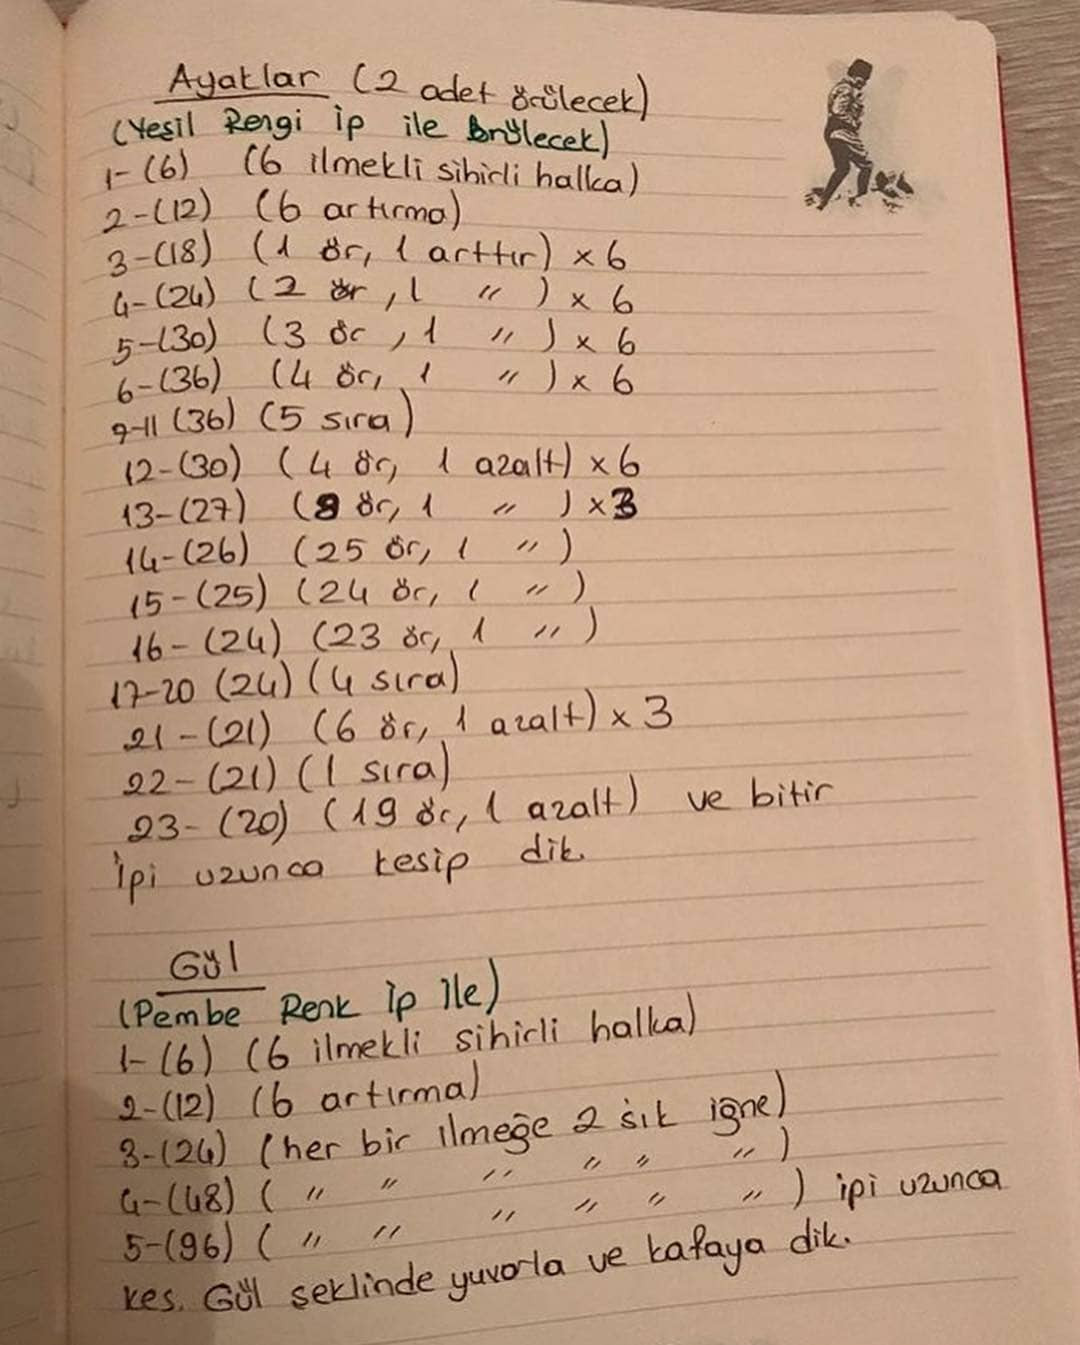 Ayaklar (2 adet örülecek)
(Yeşil Rengi İp ile örülecek)
1-(6) (6 ilmekli sihirli halka)
2-(12) (6 artırma)
3-(18) (1 ör, 1 arttır) x 6
4-(24) (2 ör, 1 " ) x 6
5-(30) (3 ör, 1 " ) x 6
6-(36) (4 ör, 1 " ) x 6
9-11 (36) (5 sıra)
12-(30) (4 ör, 1 azalt) x 6
13-(27) (8 ör, 1 " ) x 3
14-(26) (25 ör, 1 " )
15-(25) (24 ör, 1 " )
16-(24) (23 ör, 1 " )
17-20 (24) (4 sıra)
21-(21) (6 ör, 1 azalt) x 3
22-(21) (1 sıra)
23-(20) (19 ör, 1 azalt) ve bitir
İpi uzunca kesip dik.
Gül
(Pembe Renk İp İle)
1-(6) (6 ilmekli sihirli halka)
2-(12) (6 artırma)
3-(24) (her bir ilmeğe 2 sık iğne)
4-(48) ( " " " " " " )
5-(96) ( " " " " " " ) ipi uzunca
kes. Gül şeklinde yuvarla ve kafaya dik.